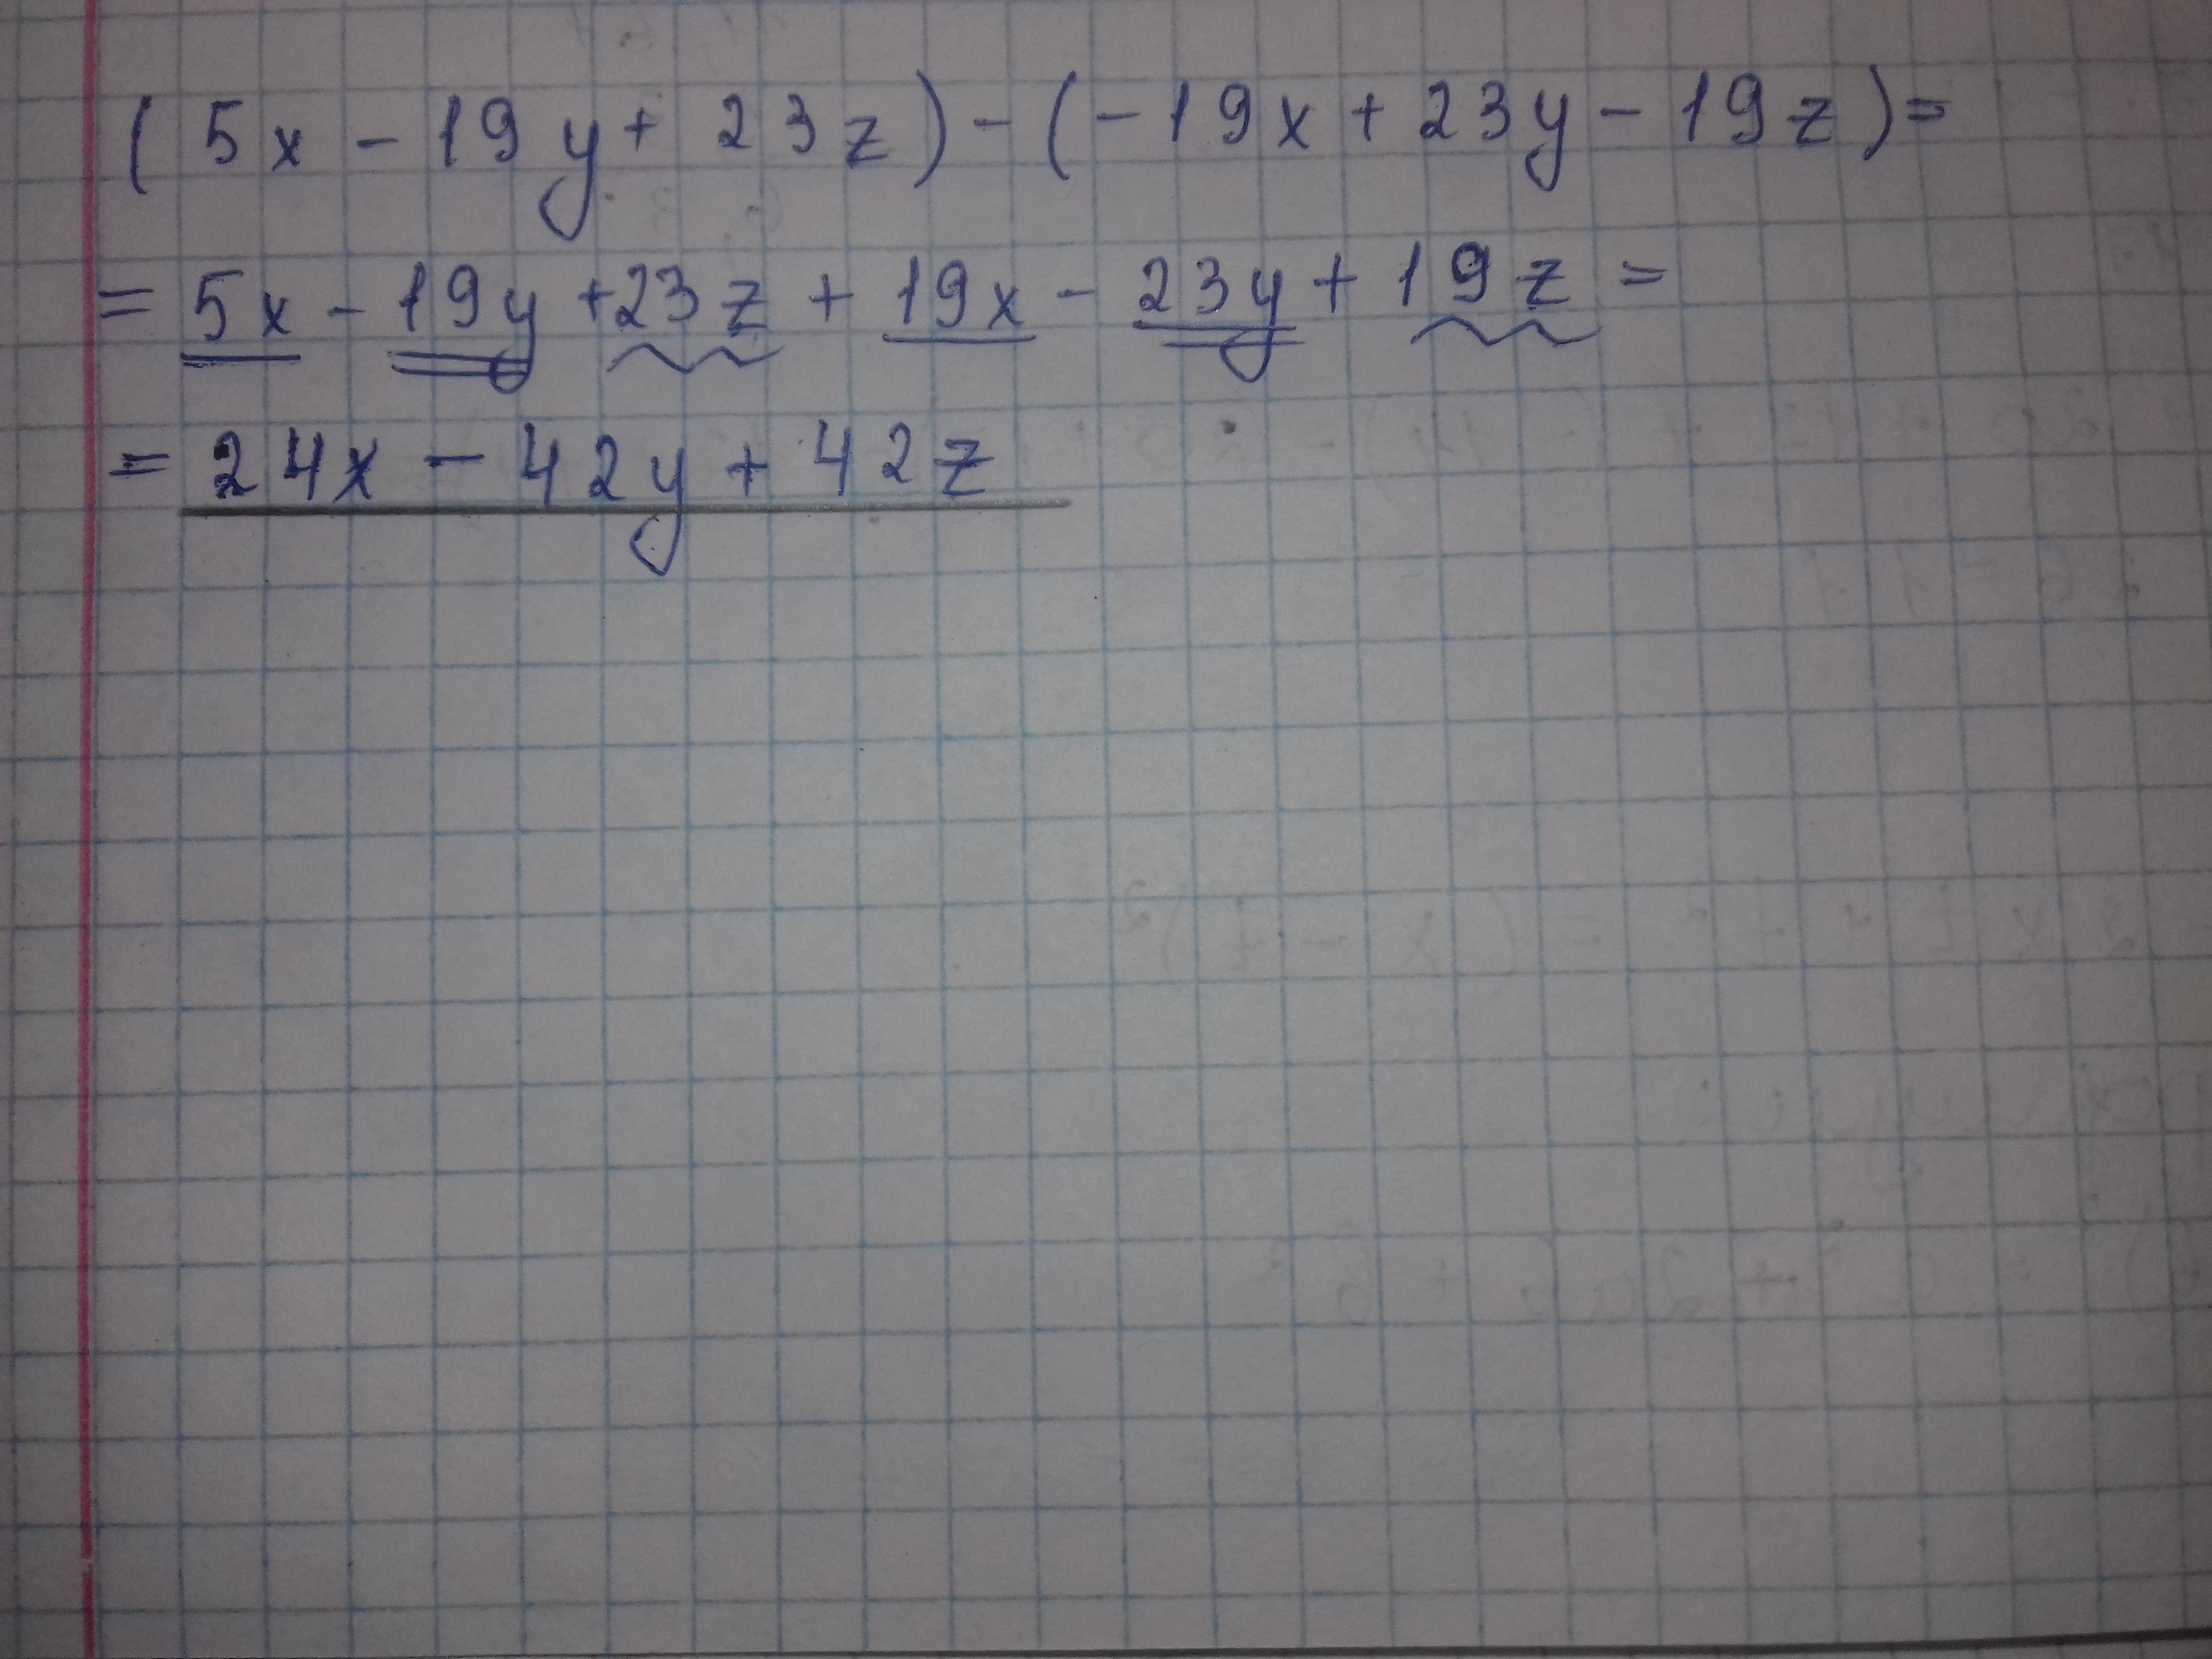 (5x - 19y + 23z) - (-19x + 23y - 19z) =
= 5x - 19y + 23z + 19x - 23y + 19z =
= 24x - 42y + 42z